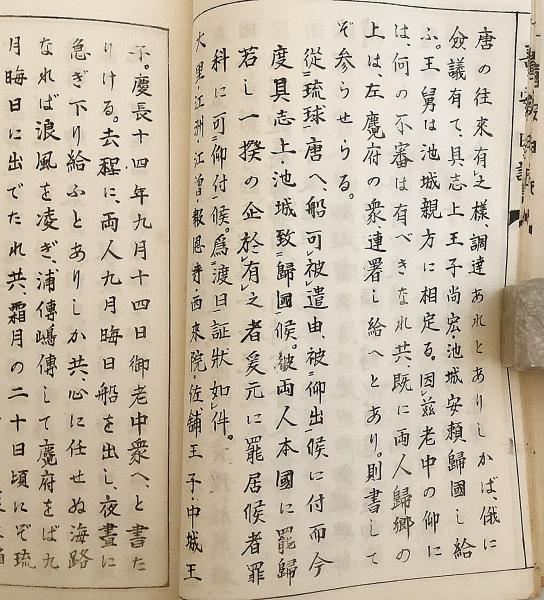 唐の往來有㆑之様、調達あれとありしかば、俄に
僉議有て、具志上王子尚宏・池城安頼歸國し給
ふ。王舅は池城親方に相定る。因㆑玆老中の仰に
は、何の不審は有べきなれ共、既に両人歸郷の
上は、左麑府の衆連署し給へとあり。則書して
ぞ参らせらる。
從㆓琉球㆒唐へ、船可㆑被㆑遣由、被㆓仰出㆒候に付而今
度具志上・池城致㆓歸國㆒候。彼両人本國に罷歸
若し一揆の企於㆑有㆑之者爰元に罷居候者罪
科に可㆓仰付㆒候。爲㆓渡日㆒証狀如㆑件。
大里・江洲・江曽・報恩寺・西来院・佐鋪王子・中城王
子。慶長十四年九月十四日御老中衆へ、と書た
りける。去程に、両人九月晦日船を出し、夜晝に
急ぎ下り給ふとありしか共、心に任せぬ海路
なれば浪風を凌ぎ、浦傳嶋傳して麑府をば九
月晦日に出でたれ共、霜月の二十日頃にぞ琉